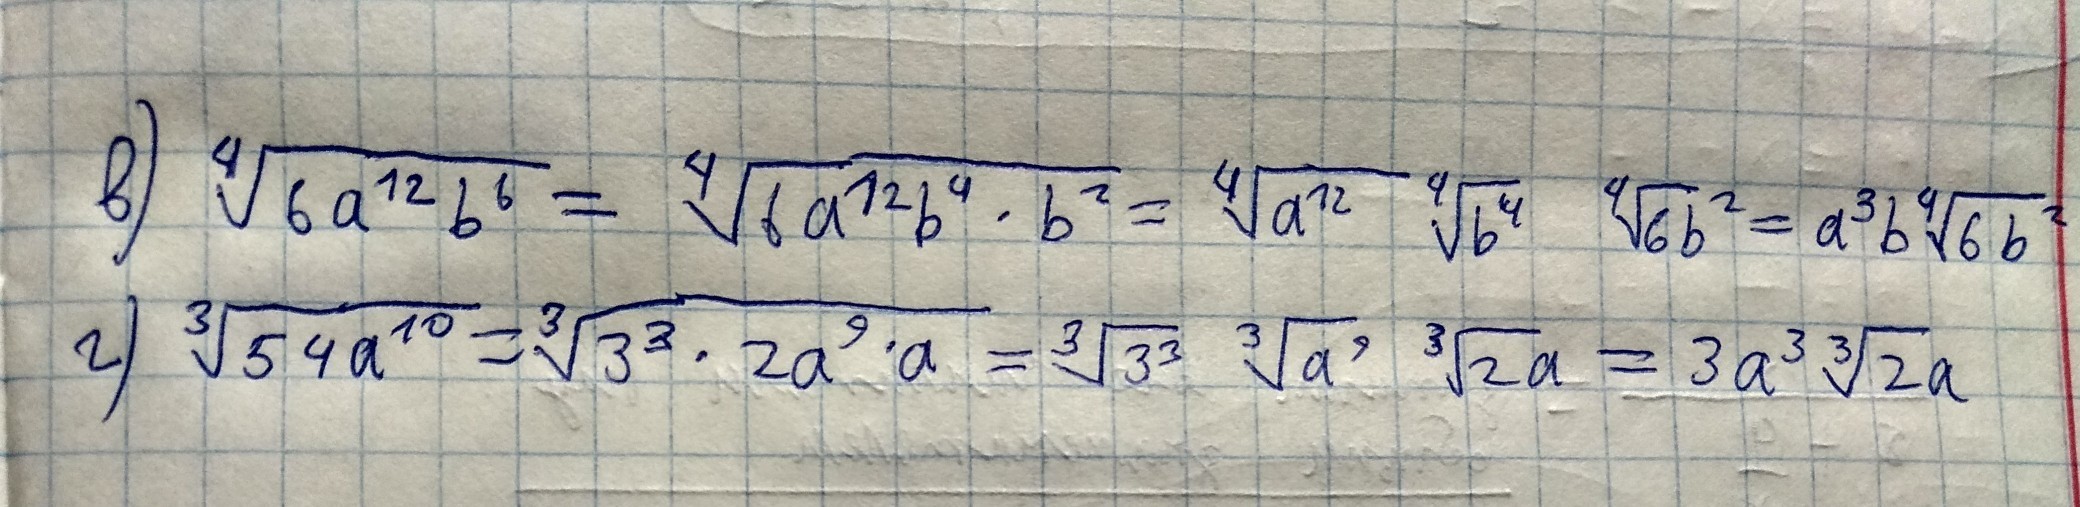 в) ⁴√(6a¹²b⁶) = ⁴√(6a¹²b⁴ · b²) = ⁴√(a¹²) ⁴√(b⁴) ⁴√(6b²) = a³b ⁴√(6b²)
г) ³√(54a¹⁰) = ³√(3³ · 2a⁹ · a) = ³√(3³) ³√(a⁹) ³√(2a) = 3a³ ³√(2a)